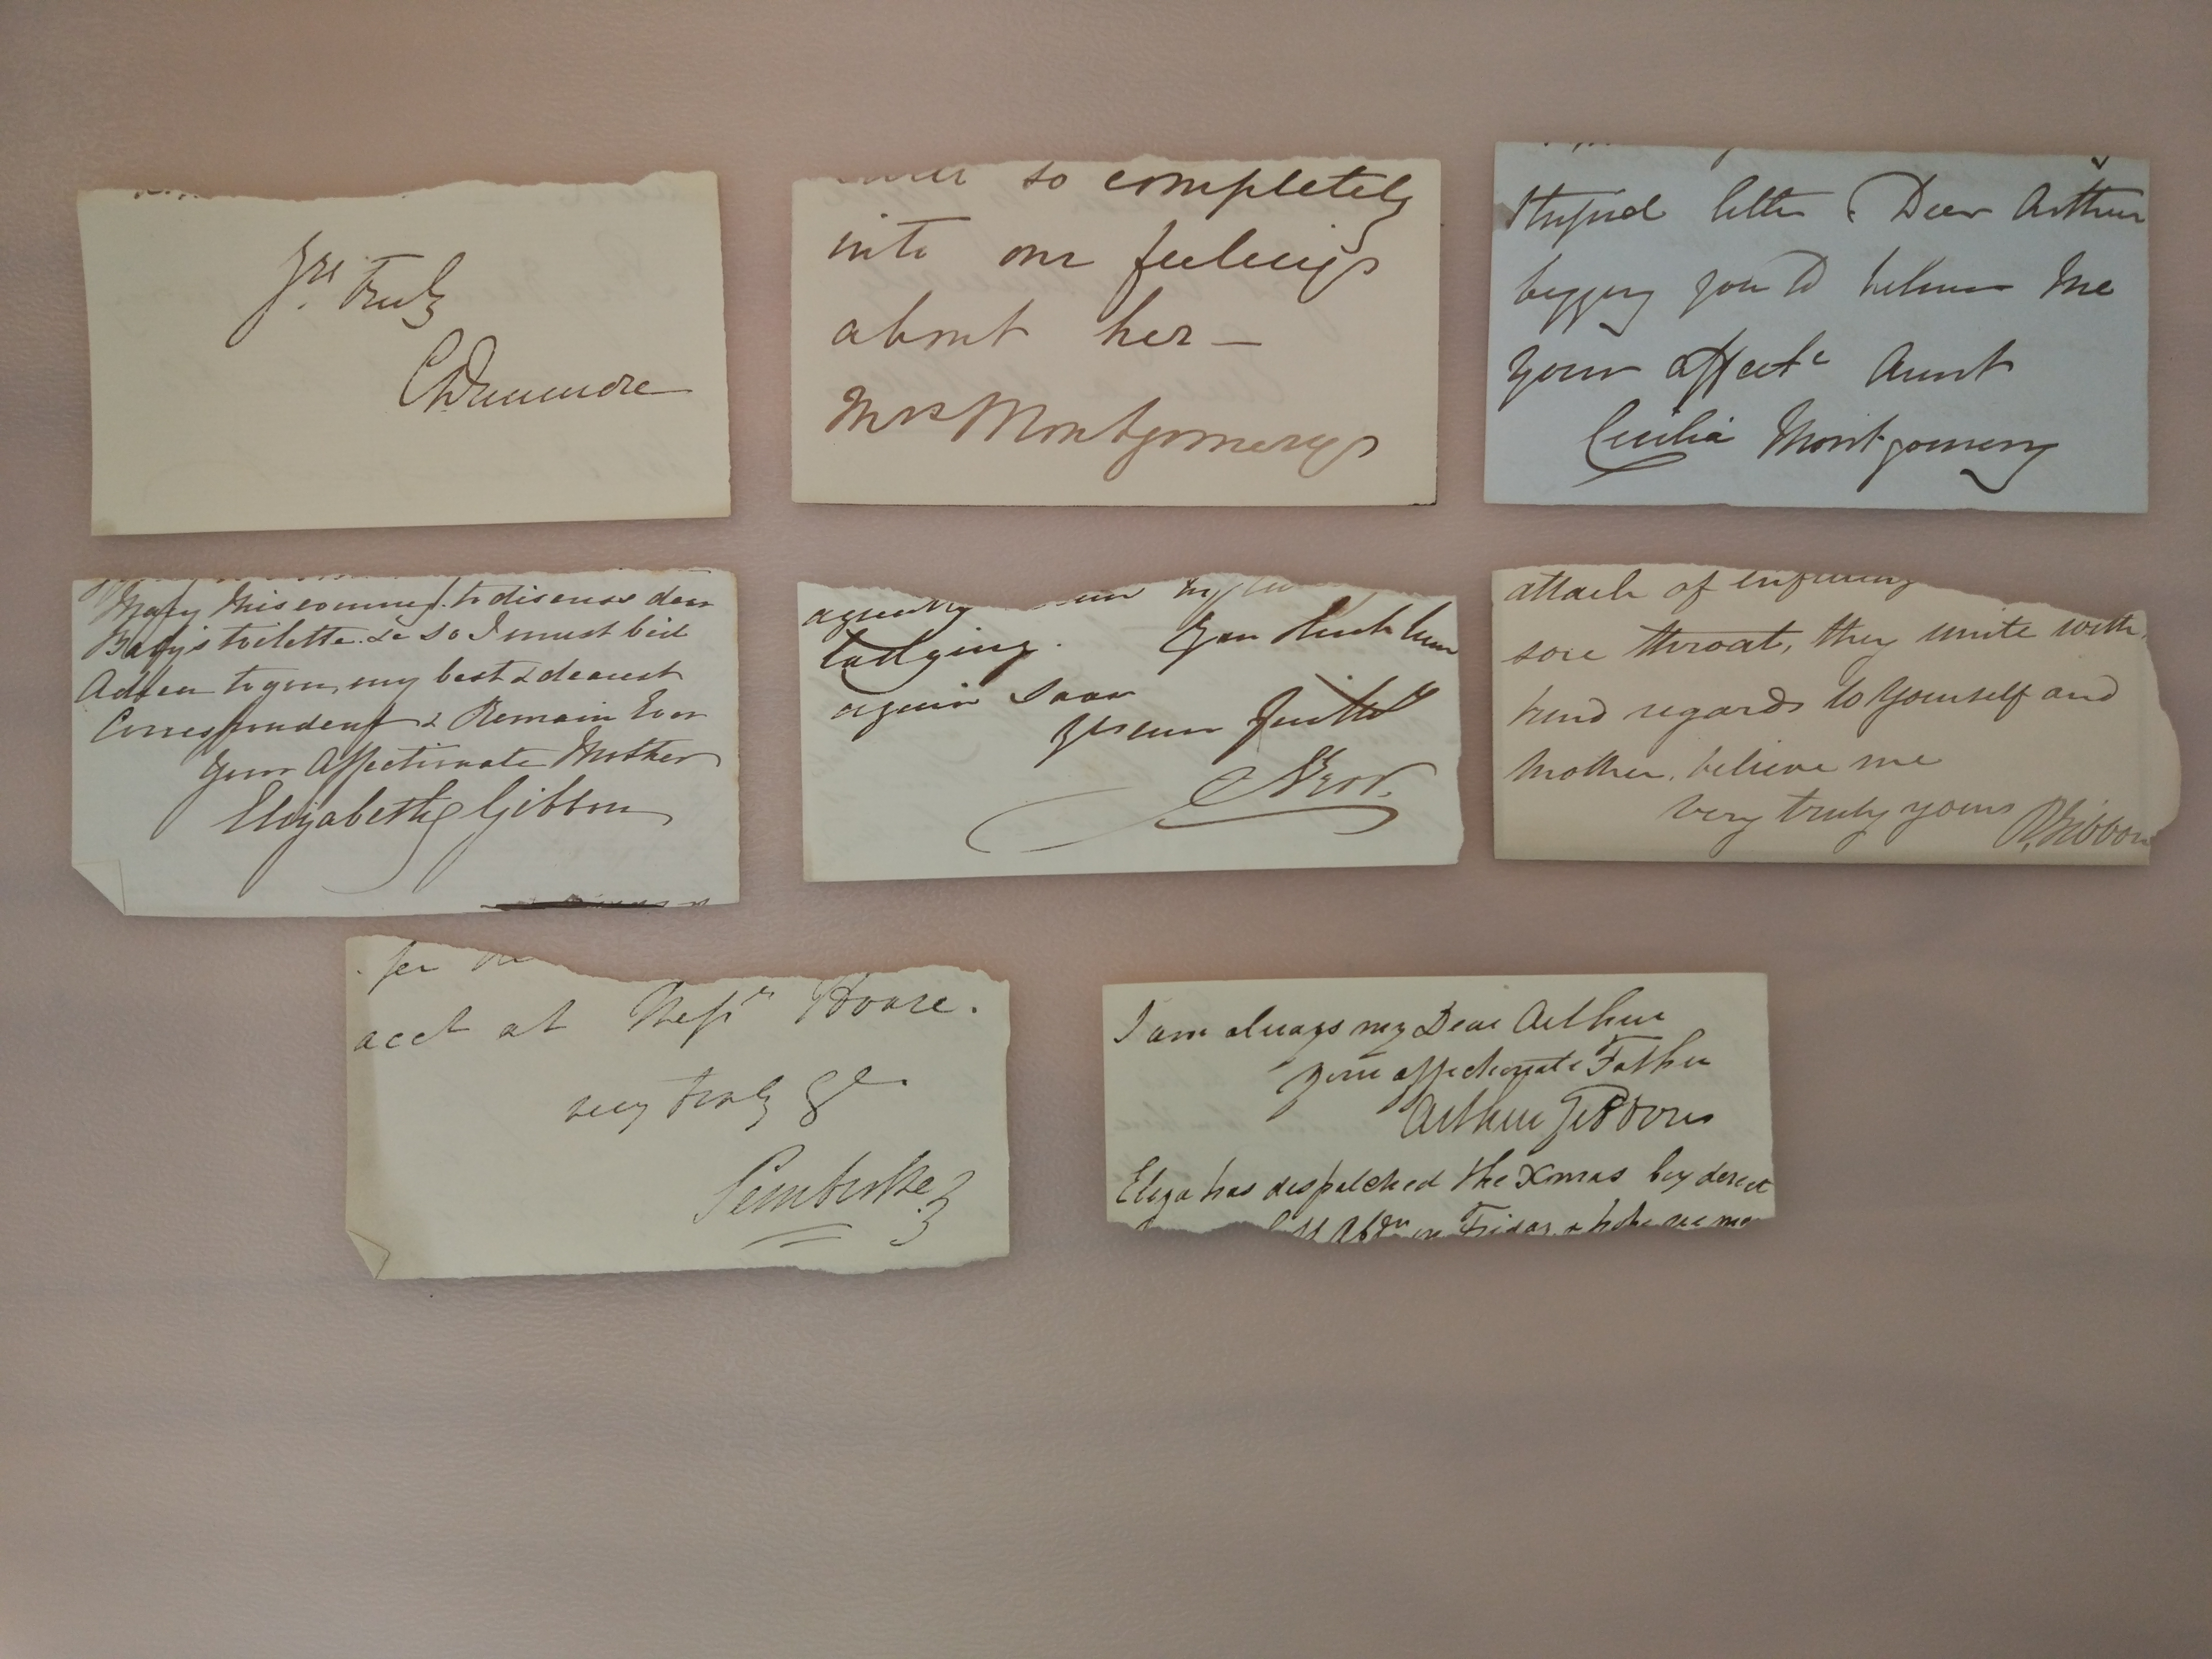 Yrs. Truly
CDunmore
so completely
into our feelings
about her —
Mrs Montgomery
stupid letter & Dear Arthur
begging you to believe me
your affecte Aunt
Cecilia Montgomery
Mary has coming to discuss dear
Baby's toilette &c so I must bid
Adieu to you, my best & dearest
Correspondent & Remain Ever
Your Affectionate Mother
Elizabeth Gibbon
lodging. You
again soon
attack of
sore throat, they unite with
kind regards to yourself and
Mother, believe me
very truly yours RGibbon
for
acct at Messrs Hoare.
very truly Ys.
Pembroke
I am always my Dear Arthur
your affectionate Father
Arthur Gibbons
Eliza has despatched the Xmas box direct
Friday & hope we may